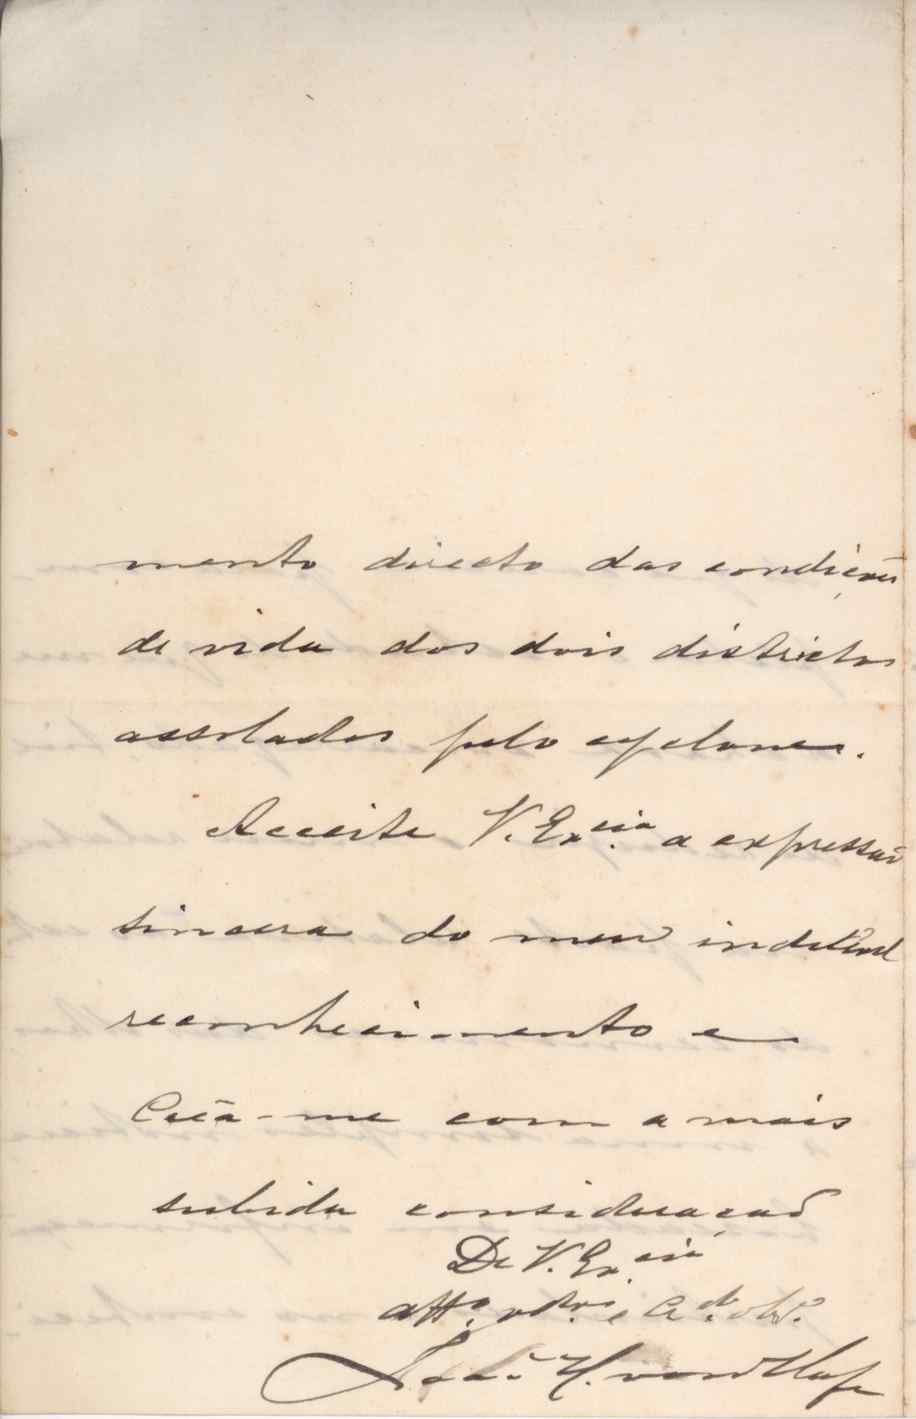 mento directo das condições
de vida dos dois districtos
assolados pelo cyclone.
Acceite V. Ex.cia a expressão
sincera do meu indelevel
reconhecimento e
Creia-me com a mais
subida consideração
De V. Ex.cia
att.o ven.or e Cr.do obr.o
João H. von Hafe